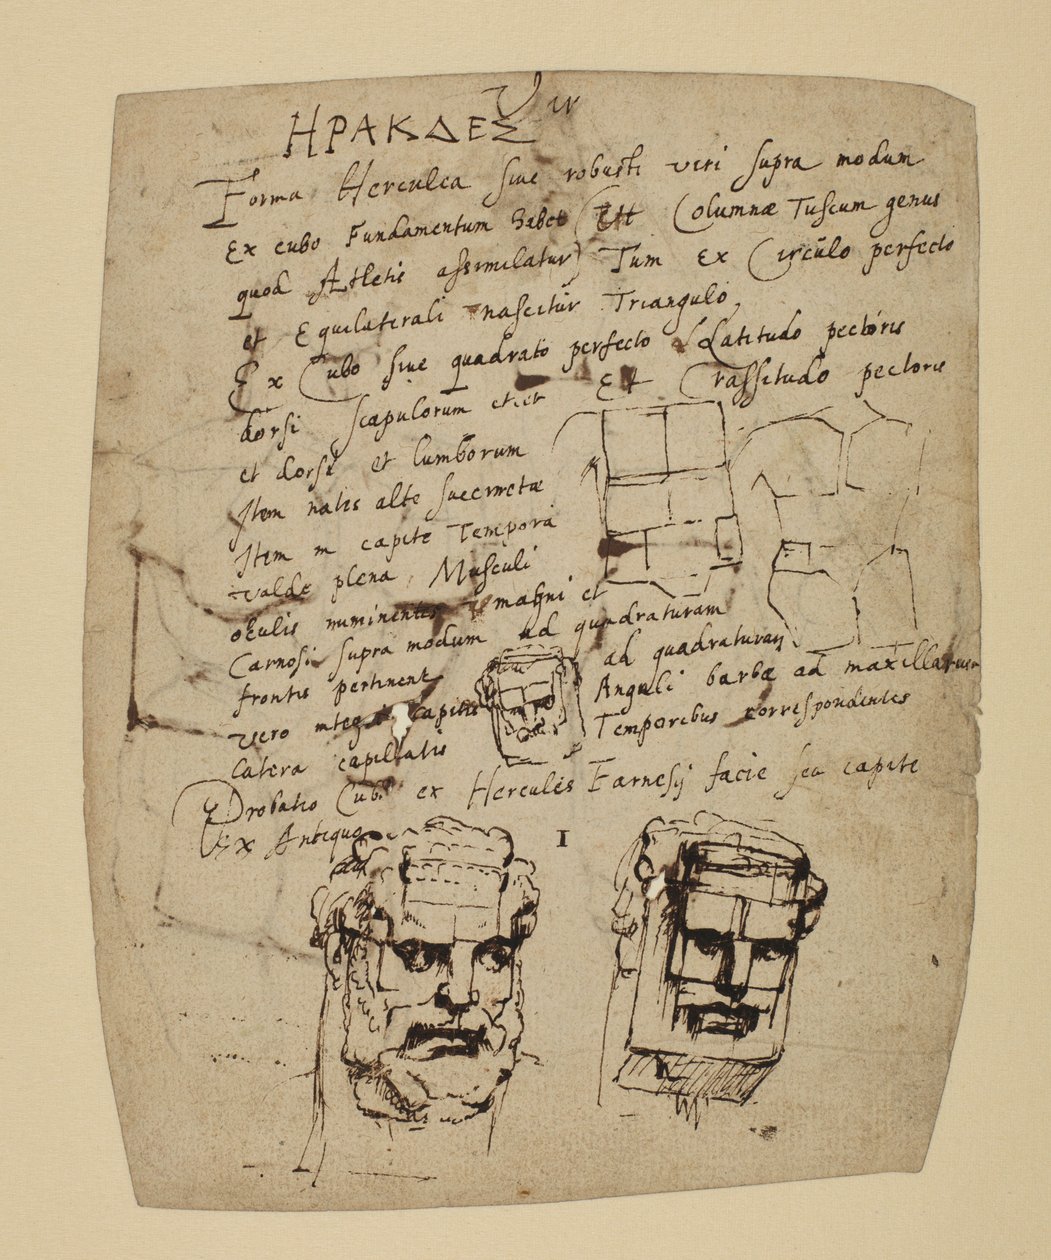 Vir
ΗΡΑΚΔΕΣ
Forma Herculea siue robusti viri supra modum
Ex cubo Fundamentum habet (Est Columnæ Tuscum genus
quod Atletis assimilatur) Tum ex Circulo perfecto
et Equilaterali nascitur Triangulo,
Ex Cubo siue quadrato perfecto Latitudo pectoris
dorsi scapulorum et Et Crassitudo pectoris
et dorsi et lumborum
Item natis alte succinctæ
Item in capite Tempora
valde plena, Musculi
oculis imminentes magni et
Carnosi supra modum ad quadraturam
frontis pertinent ad quadraturam
vero integ capitis Anguli barbæ ad maxillarum
latera capillatis Temporibus correspondentes
Probatio Cubi ex Hercules Farnesij facie seu capite
Ex Antiquo
I